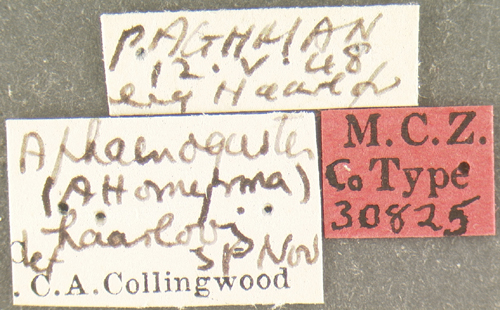 PAGHMAN
12.V.48
leg Haarlov
Aphaenogaster
(Attomyrma)
haarlovi
det sp Nov
C.A. Collingwood
M.C.Z.
Co Type
30825